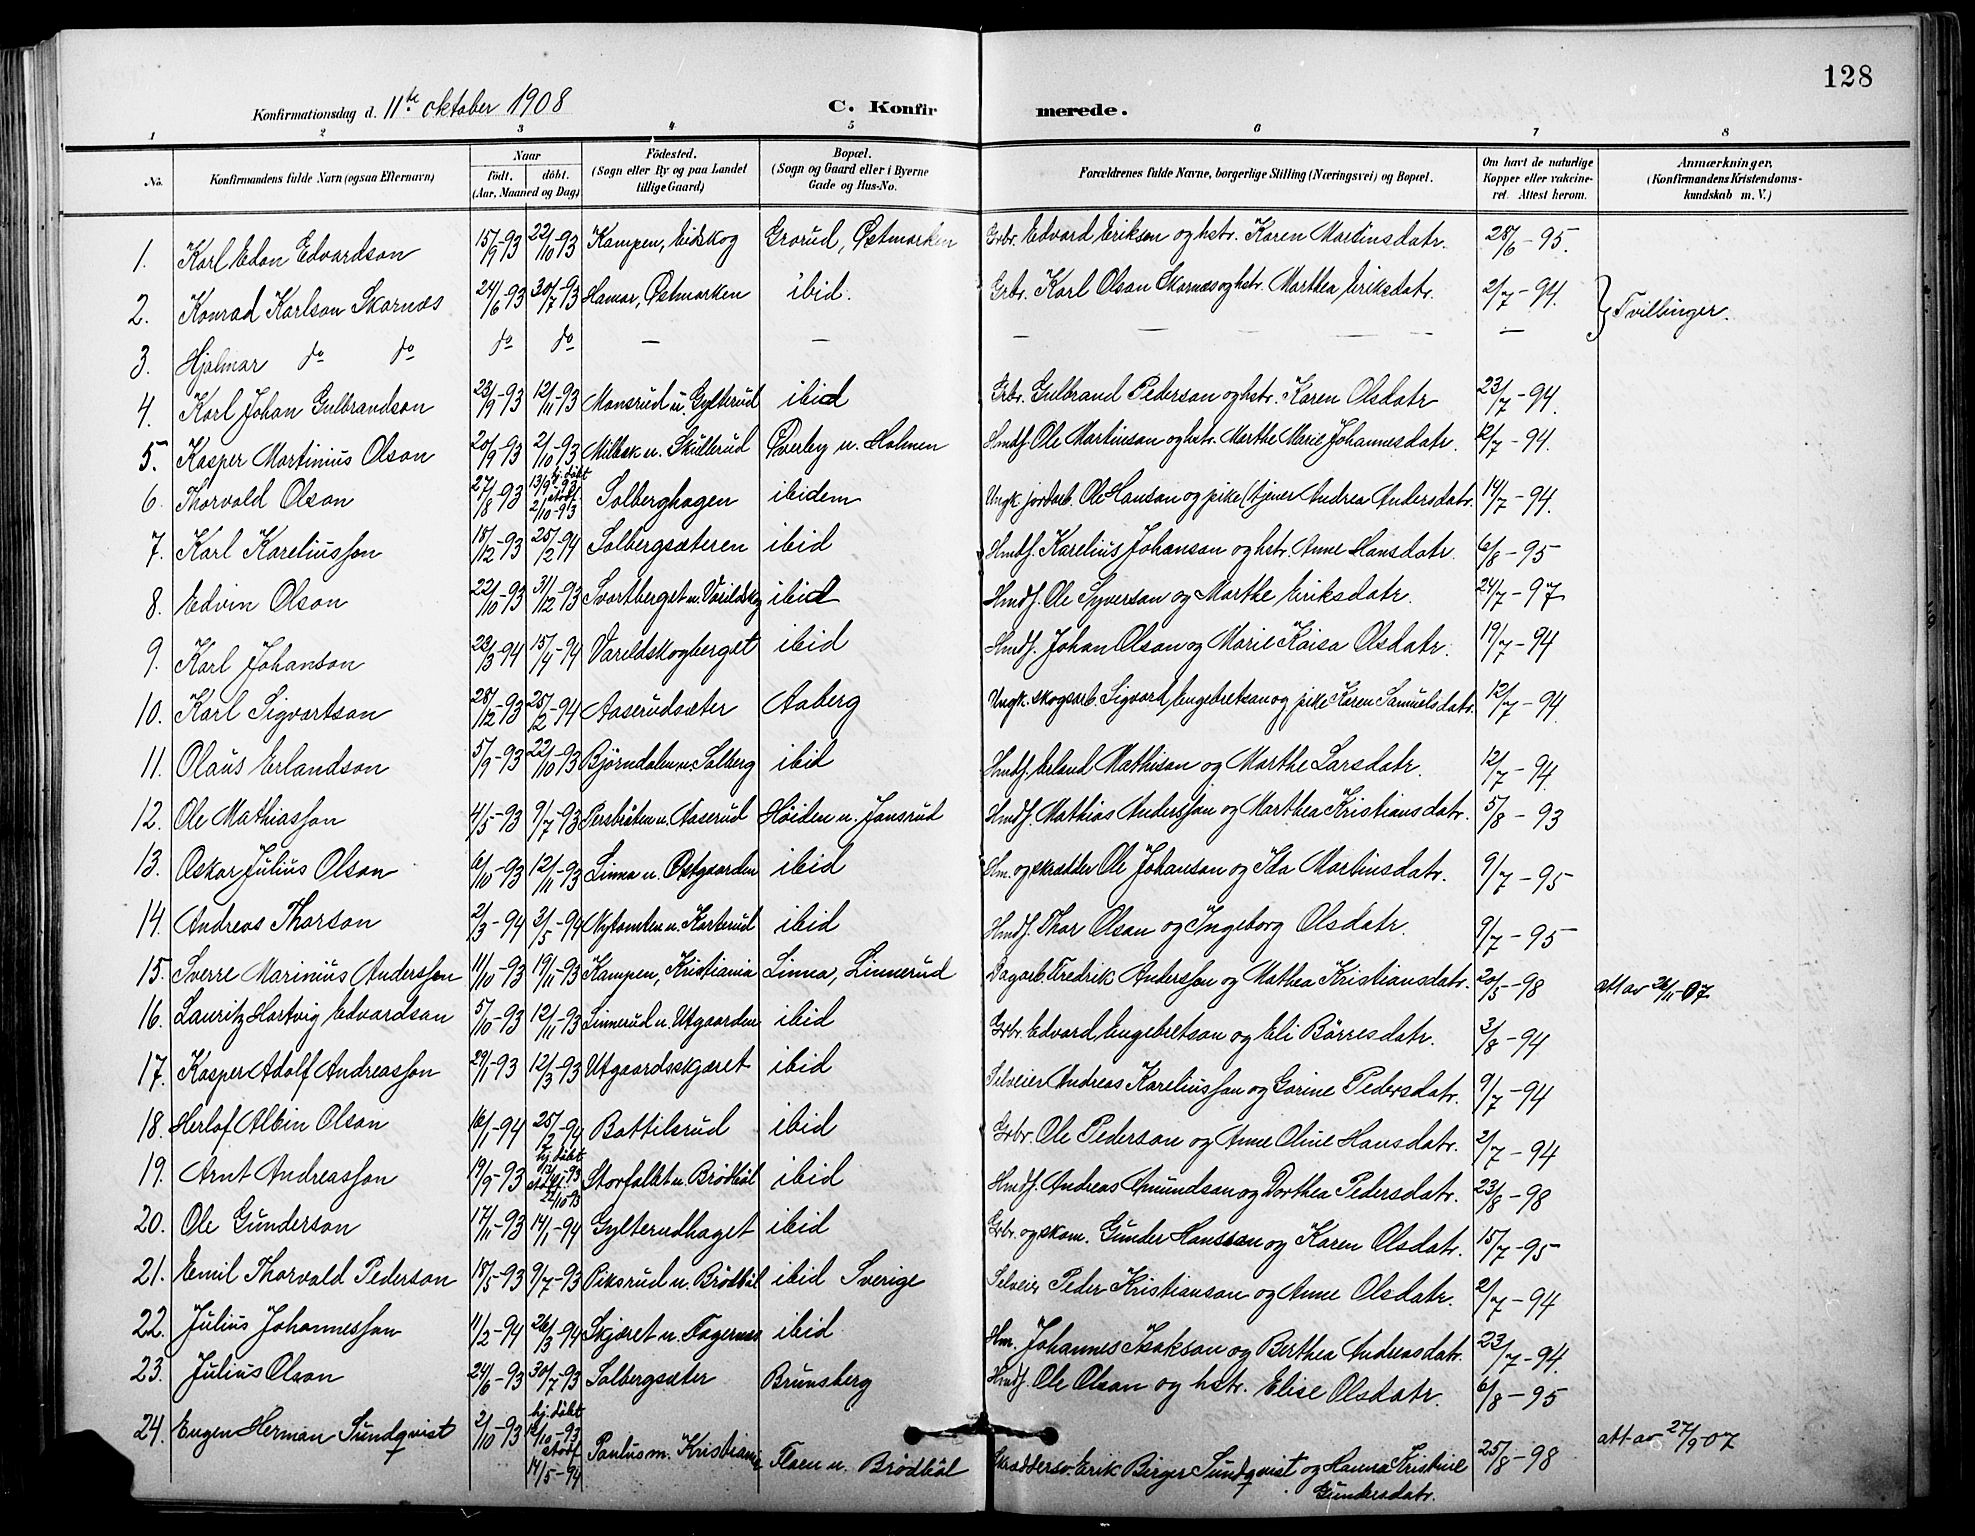 128
Konfirmationsdag d. 11te oktober 1908 C. Konfirmerede.
1 2 3 4 5 6 7 8
No. Konfirmandens fulde Navn (ogsaa Efternavn) Naar født. døbt. (Aar, Maaned og Dag) Fødested. (Sogn eller By og paa Landet tillige Gaard) Bopæl. (Sogn og Gaard eller i Byerne Gade og Hus-No. Forældrenes fulde Navne, borgerlige Stilling (Næringsvei) og Bopæl. Om havt de naturlige Kopper eller vakcineret. Attest herom. Anmærkninger, (Konfirmandens Kristendomskundskab m. V.)
1. Karl Edon Edvardson 15/9-93 22/10-93 Kampen, Eidskog Grorud, Østmarken Grbr. Edvard Eriksen og hstr. Karen Martinsdatr. 28/6-95.
2. Konrad Karlson Skarnæs 24/6-93 30/7-93 Hamar, Østmarken ibid. Grbr. Karl Olson Skarnæs og hstr. Marthea Eriksdatr. 2/7-94. } Tvillinger.
3. Hjalmar do do do do — — — — — —
4. Karl Johan Gulbrandson 23/9-93 12/11-93 Monsrud u. Gylterud ibid Grbr. Gulbrand Pederson og hstr. Karen Olsdatr 23/7-94.
5. Kasper Martinius Olson 20/9-93 2/10-93 Milbek u. Skullerud Øverby u. Holmen Hmdf. Ole Martinson og hstr. Marthe Marie Johannesdatr. 12/7-94.
6. Thorvald Olson 27/8-93 hj. døbt 13/9-93 stadf. 2/10-93 Solberghagen ibidem Ungk. jordarb. Ole Hanson og pike (tjener Andrea Andersdatr. 14/7-94.
7. Karl Kareliusson 18/12-93 25/2-94 Solbergsæteren ibid Hmdf. Karelius Johanson og hstr. Anne Hansdatr. 6/8-95
8. Edvin Olson 22/10-93 31/12-93 Svartberget u. Varildskog ibid Hmdf. Ole Syverson og Marthe Eriksdatr. 24/7-97
9. Karl Johanson 23/3-94 15/4-94 Varildskogberget ibid Hmdf. Johan Olson og Marie Kaisa Olsdatr. 19/7-94
10. Karl Sigvartson 28/12-93 25/2-94 Aaserudsæter Aaberg Ungk. skogsarb. Sigvart Engebretson og pike Karen Samuelsdatr. 12/7-94.
11. Olaus Erlandson 5/9-93 22/10-93 Bjørndalen u. Solberg ibid Hmdf. Erland Mathison og Marthe Larsdatr. 12/7-94.
12. Ole Mathiasson 4/5-93 9/7-93 Persbråten u. Aaserud Høiden u. Jonsrud Hmdf. Mathias Andersson og Marthea Kristiansdatr. 5/8-93
13. Oskar Julius Olson 6/10-93 12/11-93 Linna u. Østgaarden ibid Hm. og skrædder Ole Johanson og Ida Martinsdatr. 9/7-95
14. Andreas Thorson 2/3-94 3/5-94 Nytomten u. Karterud ibid Hmdf. Thor Olson og Ingeborg Olsdatr. 9/7-95
15. Sverre Marinius Andersson 11/10-93 19/11-93 Kampen, Kristiania Linna, Linnerud Dagarb. Fredrik Andersson og Mathea Kristiansdatr. 20/5-98 att av 26/11-07
16. Lauritz Hartvig Edvardson 5/10-93 12/11-93 Linnerud u. Utgaarden ibid Grbr. Edvard Engebretson og Eli Børresdatr. 3/8-94
17. Kasper Adolf Andreasson 29/1-93 12/3-93 Utgaardsskjæret ibid Selveier Andreas Kareliusson og Gorine Pedersdatr. 9/7-94
18. Herlof Albin Olson 16/1-94 25/2-94 Bottilsrud ibid Grbr. Ole Pederson og Anne Oline Hansdatr. 2/7-94
19. Arnt Andreasson 19/9-93 hj. døbt stadf. 22/10-93 Storfallet u. Brødbøl ibid Hmdf. Andreas Amundson og Dorthea Pedersdatr. 23/8-98
20. Ole Gunderson 17/11-93 14/1-94 Gylterudhaget ibid Grbr. og skom. Gunder Hansson og Karen Olsdatr. 15/7-95
21. Emil Thorvald Pederson 18/5-93 9/7-93 Piksrud u. Brødbøl ibid Sverige Selveier Peder Kristianson og Anne Olsdatr. 2/7-94
22. Julius Johannesson 11/2-94 26/3-94 Skjæret u. Fagernes ibid Hm. Johannes Isakson og Berthea Andreasdatr. 23/7-94
23. Julius Olson 24/6-93 30/7-93 Solbergsæter Brunsberg Hmdf. Ole Olson og hstr. Elise Olsdatr. 6/8-95
24. Eugen Herman Sundqvist 2/10-93 hj. døbt 12/10-93 stadf 14/5-94 Paulus m. Kristiania Floen u. Brødbøl Skræddersv. Erik Birger Sundqvist og Hanna Kristine Gundersdatr. 25/8-98 att av 27/9-07